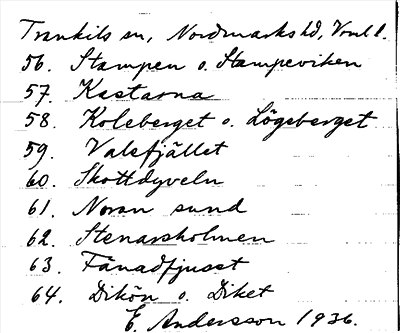 Trankils sn, Nordmarks hd, Vrml l.
56. Stampen o. Stampeviken
57. Kastarna
58. Koleberget o. Lögeberget
59. Valsfjället
60. Skottdyveln
61. Noran sund
62. Stenarsholmen
63. Fånadfjuset
64. Dikön o. Diket
E. Andersson 1936.